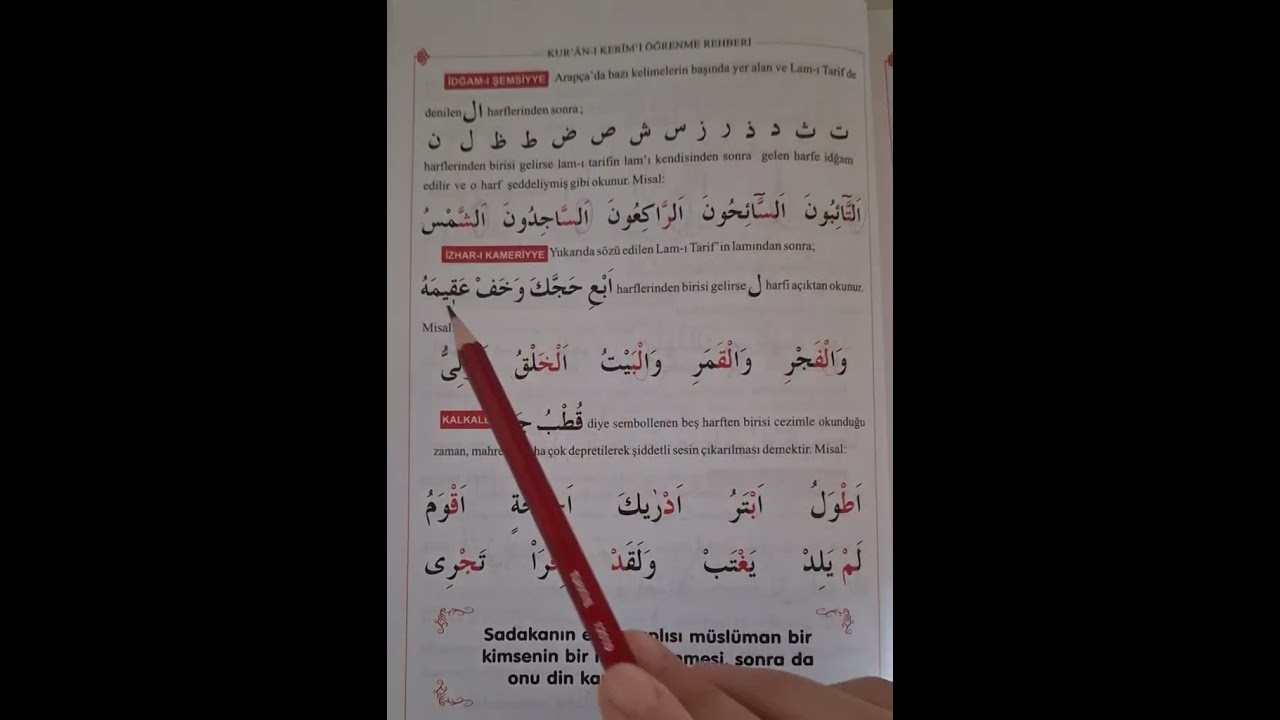 KUR'ÂN-I KERÎM'İ ÖĞRENME REHBERİ
İDĞAM-I ŞEMSİYYE Arapça'da bazı kelimelerin başında yer alan ve Lam-ı Tarif de
denilen ال harflerinden sonra;
ت ث د ذ ر ز س ش ص ض ط ظ ل ن
harflerinden birisi gelirse lam-ı tarifin lam'ı kendisinden sonra gelen harfe idğam
edilir ve o harf şeddeliymiş gibi okunur. Misal:
اَلتَّآئِبُونَ اَلسَّآئِحُونَ اَلرَّاكِعُونَ اَلسَّاجِدُونَ اَلشَّمْسُ
İZHAR-I KAMERİYYE Yukarıda sözü edilen Lam-ı Tarif'in lamından sonra;
اَبْغِ حَجَّكَ وَخَفْ عَقِيمَهُ harflerinden birisi gelirse ل harfi açıktan okunur.
Misal:
وَالْفَجْرِ وَالْقَمَرِ وَالْبَيْتُ اَلْخَلْقُ
قُطْبُ diye sembollenen beş harften birisi cezimle okunduğu
zaman, çok depretilerek şiddetli sesin çıkarılması demektir. Misal:
اَطْوَلُ اَبْتَرُ اَدْرٰيكَ اَقْوَمُ
لَمْ يَلِدْ يَغْتَبْ وَلَقَدْ تَجْرِى
Sadakanın müslüman bir
kimsenin bir sonra da
onu din